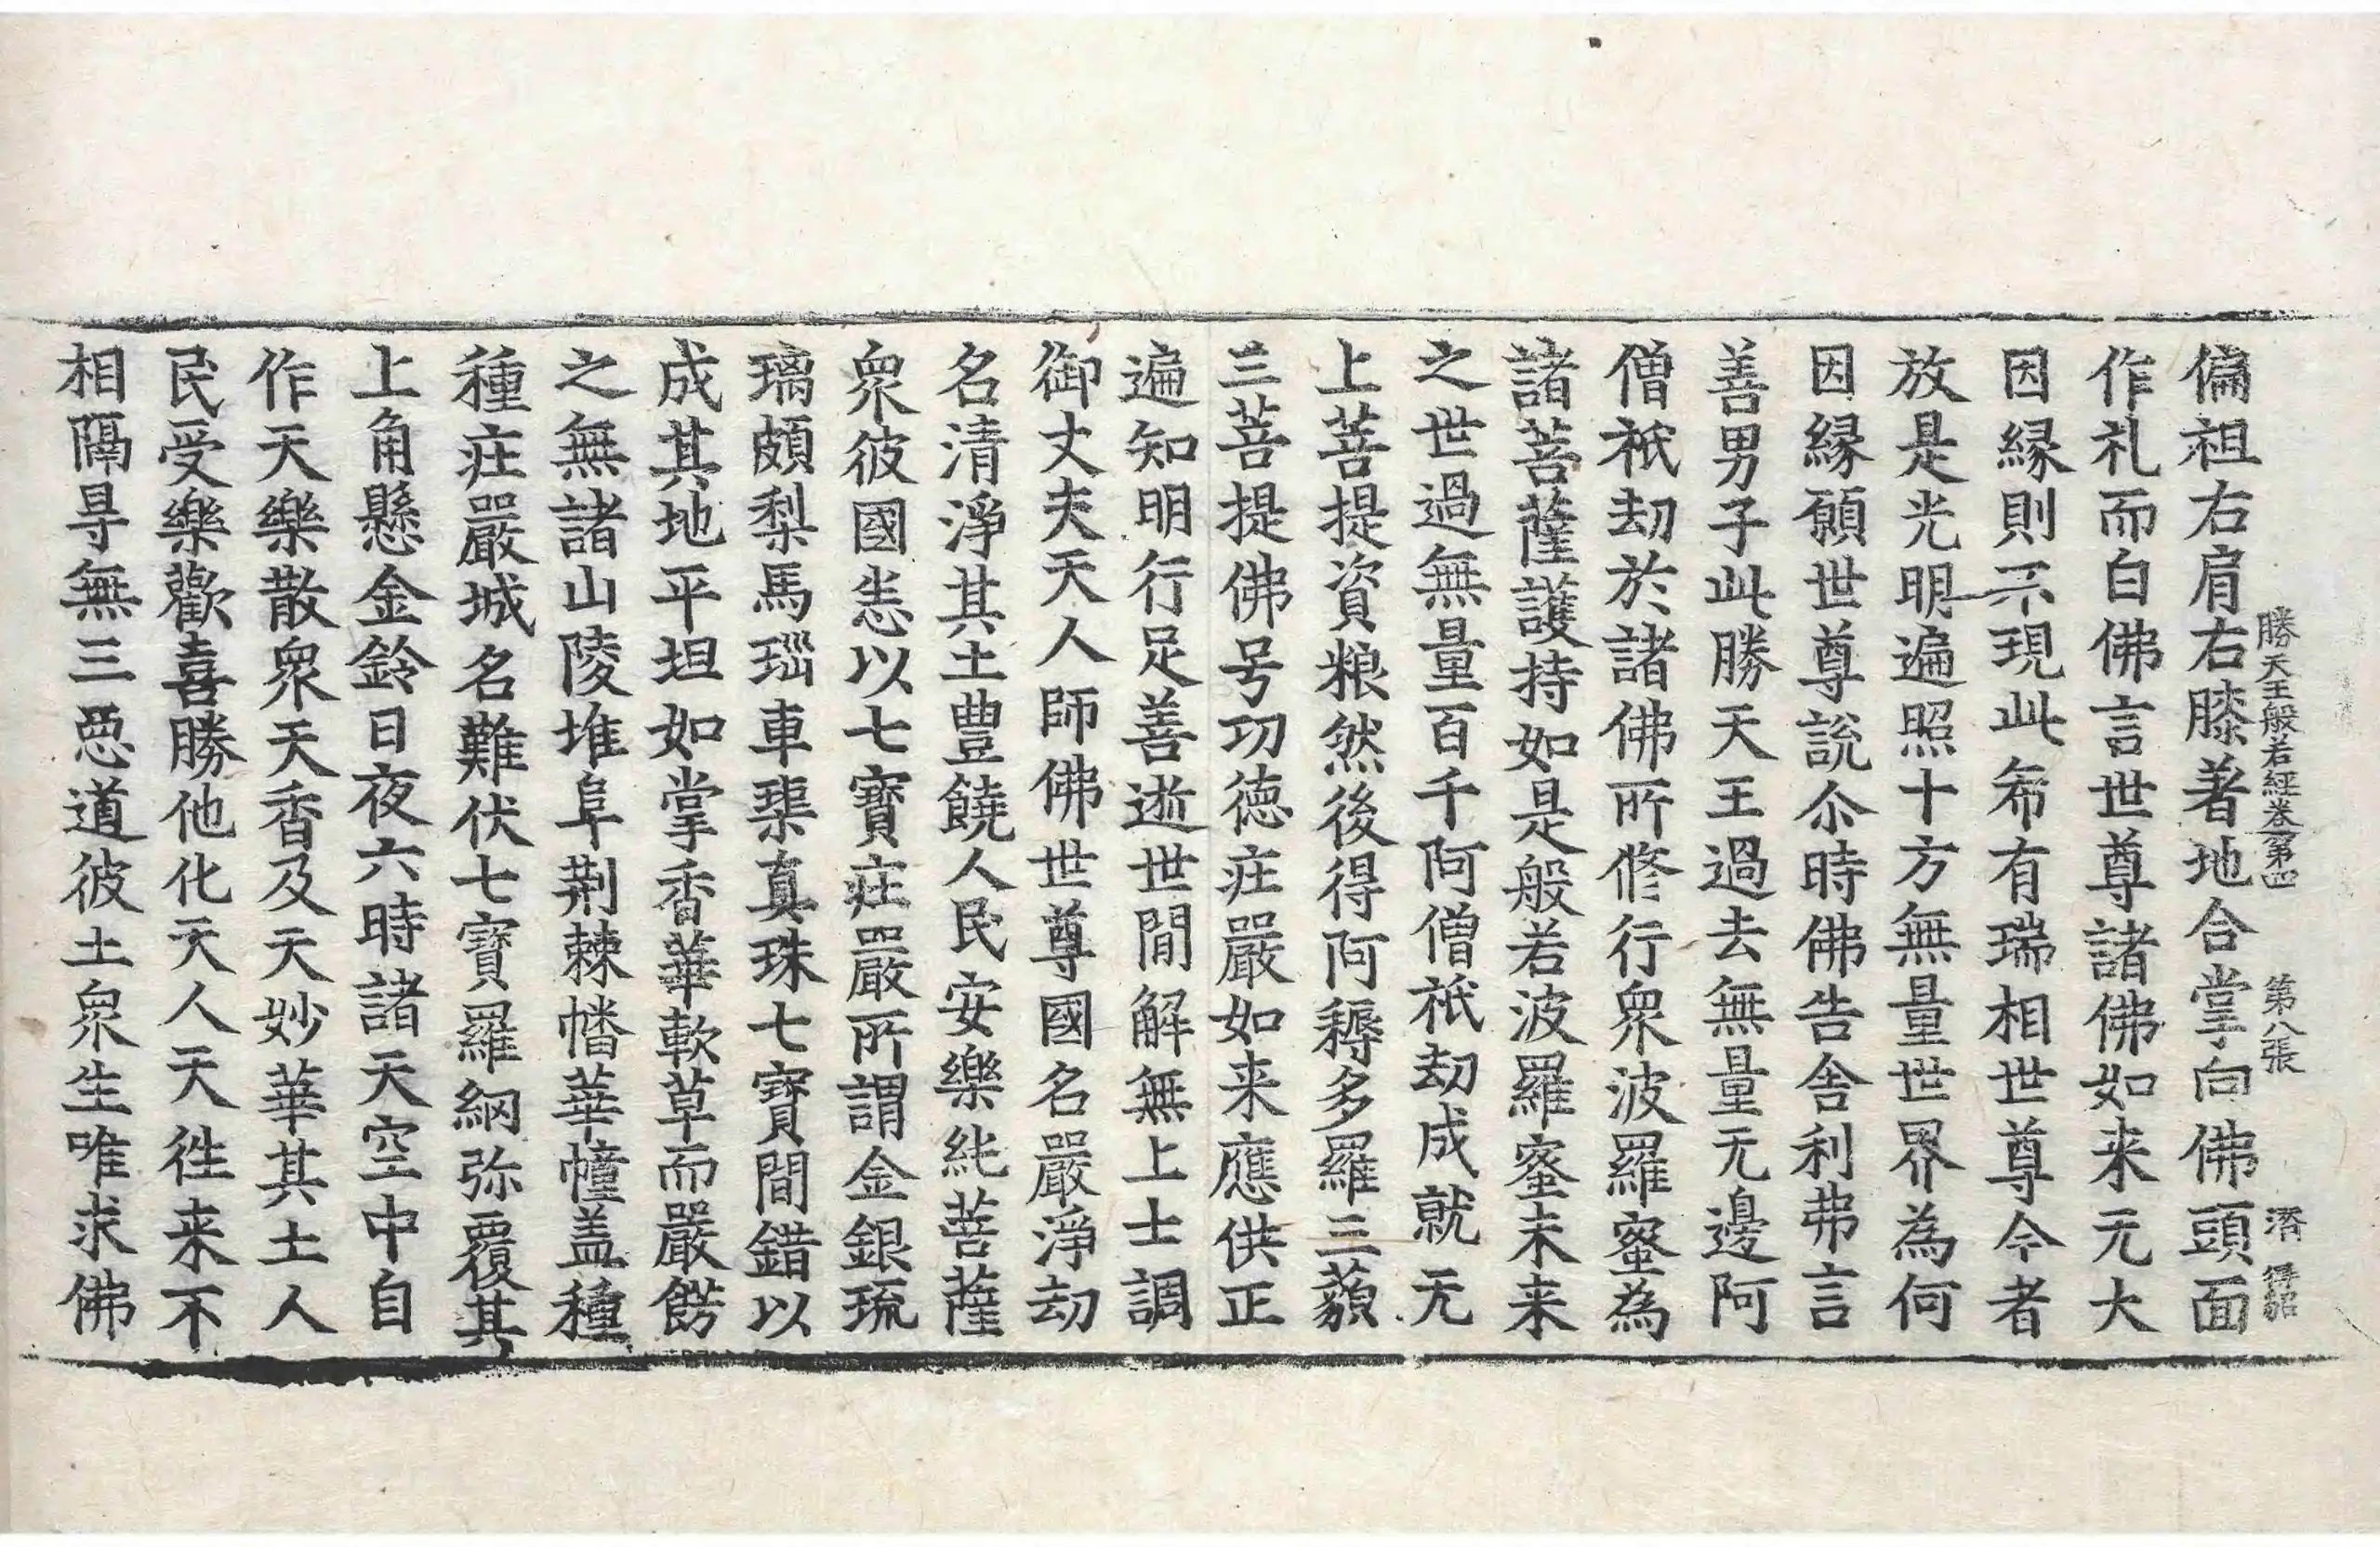 勝天王般若經卷第四　第八張　潛　得韶
偏袒右肩右膝著地合掌向佛頭面
作礼而白佛言世尊諸佛如来无大
因縁則不現此希有瑞相世尊今者
放是光明遍照十方無量世界為何
因縁願世尊説尒時佛告舍利弗言
善男子此勝天王過去無量无邊阿
僧祇劫於諸佛所修行衆波羅蜜為
諸菩薩護持如是般若波羅蜜未来
之世過無量百千阿僧祇劫成就无
上菩提資粮然後得阿耨多羅三藐
三菩提佛号功徳庄嚴如来應供正
遍知明行足善逝世間解無上士調
御丈夫天人師佛世尊國名嚴淨劫
名清淨其土豊饒人民安樂純菩薩
衆彼國悉以七寶庄嚴所謂金銀琉
璃頗梨馬瑙車璖真珠七寶間錯以
成其地平坦如掌香華軟草而嚴餝
之無諸山陵堆阜荆棘幡華幢盖種
種庄嚴城名難伏七寶羅網弥覆其
上角懸金鈴日夜六時諸天空中自
作天樂散衆天香及天妙華其土人
民受樂歡喜勝他化天人天徃来不
相隔㝵無三惡道彼土衆生唯求佛